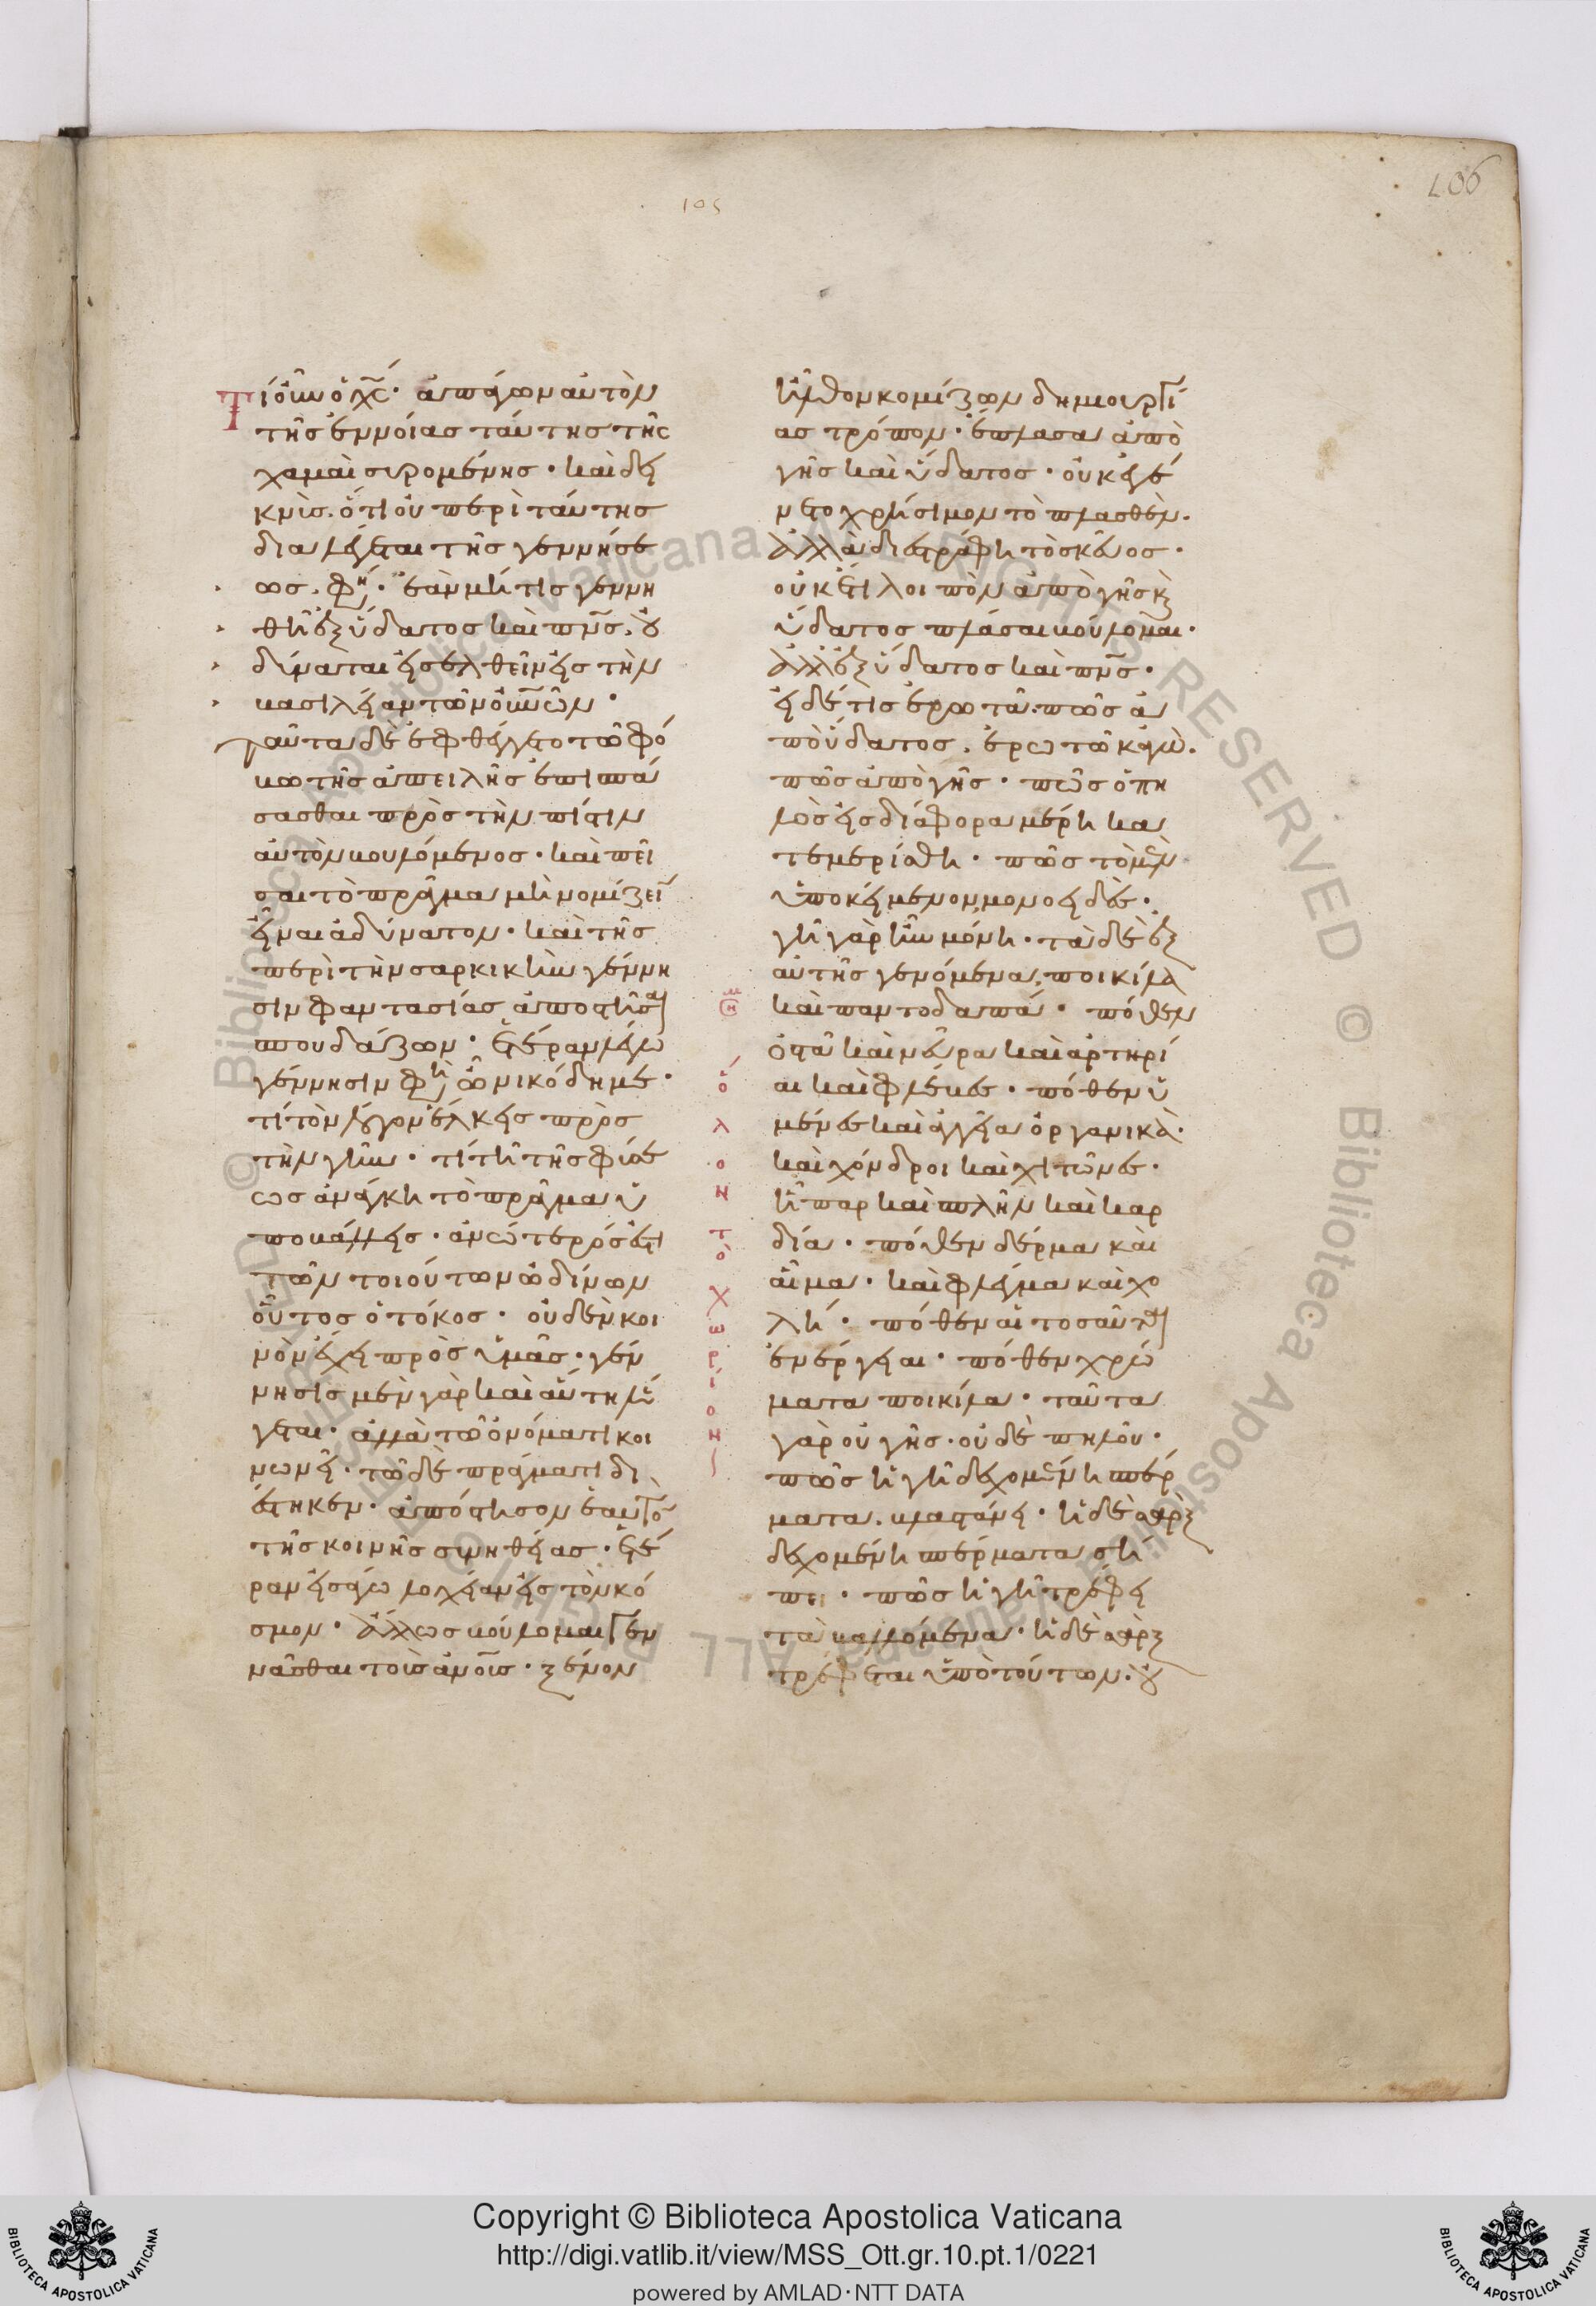 106
105
Τί οὖν ὁ χ̅ς̅· ἀπάγων αὐτὸν
τῆς ἐννοίας ταύτης τῆς
χαμαὶ συρομένης· καὶ δει
κνὺς. ὅτι οὐ περὶ ταύτης
διαλέγεται τῆς γεννήσε
ως. φη· ἐὰν μή τις γεννη
θῇ ἐξ ὕδατος καὶ πν̅ς̅. οὐ
δύναται εἰσελθεῖν εἰς τὴν
βασιλείαν τῶν οὐν̅ῶν·
ταῦτα δὲ ἐφθέγγετο τῶ φό
βω τῆς ἀπειλῆς ἐπισπά
σασθαι πρὸς τὴν πίστιν
αὐτὸν βουλόμενος· καὶ πεῖ
σαι τὸ πρᾶγμα μὴ νομίζειν
εἶναι ἀδύνατον· καὶ τῆς
περὶ τὴν σαρκικὴν γέννη
σιν φαντασίας ἀποστῆσαι
σπουδάζων· ἑτέραν λέγω
γέννησιν φη ὦ νικόδημε·
τί τὸν λόγον ἕλκεις πρὸς
τὴν γῆν· τί τῆ τῆς φύσε
ως ἀνάγκη τὸ πρᾶγμα ὑ
ποβάλλεις· ἀνώτερός ἐστι
τῶν τοιούτων ὠδίνων
οὗτος ὁ τόκος· οὐδὲν κοι
νὸν ἔχει πρὸς ὑμᾶς· γέν
νησις μὲν γὰρ καὶ αὕτη λέ
γεται· ἀλλὰ τῶ ὀνόματι κοι
νωνεῖ· τῶ δὲ πράγματι δι
έστηκεν· ἀπόστησον ἑαυτὸν
τῆς κοινῆς συνηθείας· ἑτέ
ραν εἰσάγω λοχείαν εἰς τὸν κό
σμον· ἄλλως βούλομαι γεν
νᾶσθαι τοὺς ἀνο̅υς· ξένον
ἦλθον κομίζων δημιουργί
ας τρόπον· ἔπλασα ἀπὸ
γῆς καὶ ὕδατος· οὐκ ἐγέ
νετο χρήσιμον τὸ πλασθὲν.
ἀλλὰ διεστράφη τὸ σκεῦος·
οὐκ ἔτι λοιπὸν ἀπὸ γῆς κ
ὕδατος πλάσαι βούλομαι·
ἀλλ' ἐξ ὕδατος καὶ πν̅ς̅·
εἰ δέ τις ἐρωτᾶ. πῶς ἀ
πὸ ὕδατος. ἐρωτῶ κἀγὼ.
πῶς ἀπὸ γῆς· πῶς ὁ πη
λὸς εἰς διάφορα μέρη κα
τεμερίσθη· πῶς τὸ μὲν
ὑποκείμενον, μονοειδὲς·
γῆ γὰρ ἦν μόνη· τὰ δὲ ἐξ
αὐτῆς γενόμενα, ποικίλα
καὶ παντοδαπά· πόθεν
ὀστᾶ καὶ νεῦρα καὶ ἀρτηρί
αι καὶ φλέβες· πόθεν ὑ
μένες καὶ ἀγγεῖα ὀργανικὰ·
καὶ χόνδροι καὶ χιτῶνες·
ἧπαρ καὶ σπλὴν καὶ καρ
δία· πόθεν δέρμα καὶ
αἷμα· καὶ φλέγμα καὶ χο
λή· πόθεν αἱ τοσαῦται
ἐνέργειαι· πόθεν χρώ
ματα ποικίλα· ταῦτα
γὰρ οὐ γῆς· οὐδὲ πηλοῦ·
πῶς ἡ γῆ δεχομένη σπέρ
ματα. βλαστάνει· ἡ δὲ σὰρξ
δεχομένη σπέρματα σή
πει· πῶς ἡ γῆ τρέφει
τὰ βαλλόμενα· ἡ δὲ σὰρξ
τρέφεται ὑπὸ τούτων. οὐ
ὅλον τὸ χωρίον
© Biblioteca Apostolica Vaticana ALL RIGHTS RESERVED © Biblioteca Apostolica Vaticana ALL RIGHTS RESERVED
Copyright © Biblioteca Apostolica Vaticana
http://digi.vatlib.it/view/MSS_Ott.gr.10.pt.1/0221
powered by AMLAD·NTT DATA
BIBLIOTECA APOSTOLICA VATICANA
BIBLIOTECA APOSTOLICA VATICANA